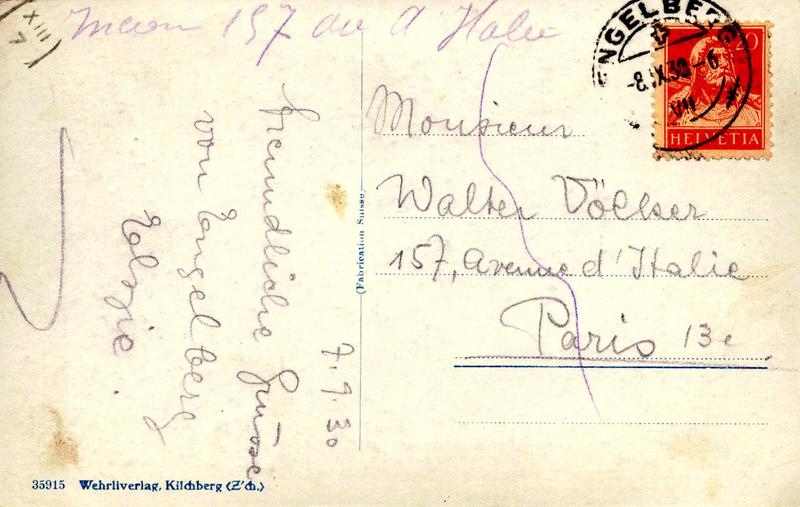 XIII
157 av d'Italie
ENGELBERG
-8.IX.30-6
VII
20
HELVETIA
Monsieur
Walter Völker
157, Avenue d'Italie
Paris 13e
7.9.30
Freundliche Grüsse
von Engelberg
(Fabrication Suisse)
35915 Wehrliverlag, Kilchberg (Z'ch.)